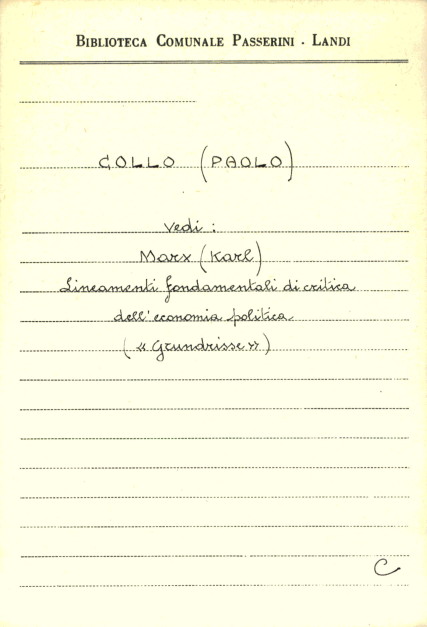 BIBLIOTECA COMUNALE PASSERINI - LANDI
COLLO (PAOLO)
Vedi :
Marx (Karl)
Lineamenti fondamentali di critica
dell'economia politica
( « Grundrisse » )
C